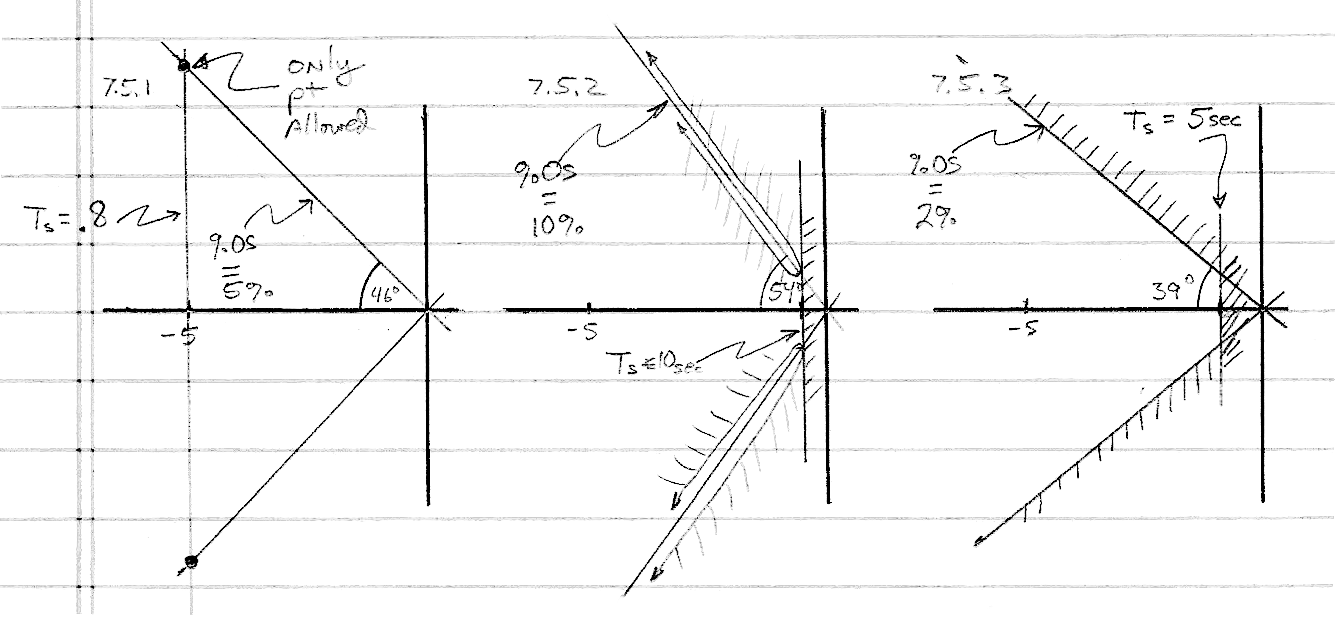 7.5.1
only
pt
Allowed
Ts = .8
%OS
=
5%
46°
-5
7.5.2
%OS
=
10%
54°
-5
Ts = 10sec
7.5.3
Ts = 5sec
%OS
=
2%
39°
-5